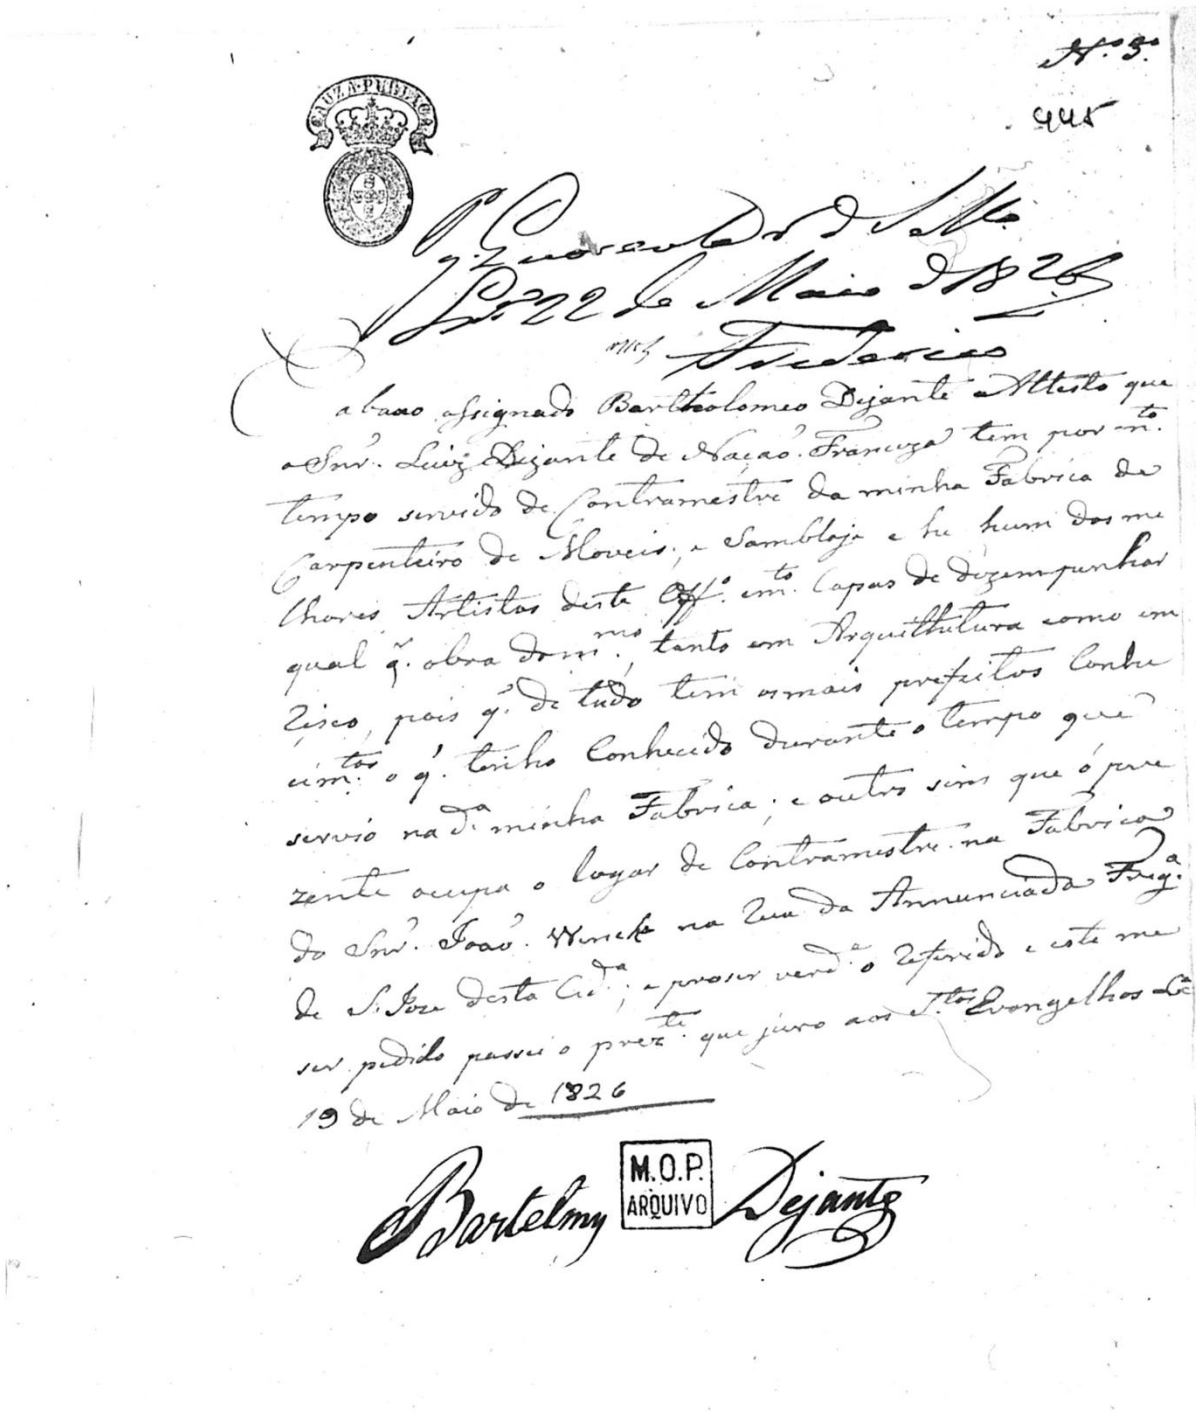 N.º 3.º
445
CAUZA PUBLICA
Pg. Quarenta rs de Sello
Lxª 22 de Maio de 1826
Frederico
abaxo assignado Bartholomeo Dejante Attesto que
o Snr. Luiz Dejante de Naçaõ Franceza tem por mto.
tempo servido de Contramestre da minha Fabrica de
Carpenteiro de Moveis, e Sambloje e he hum dos me
lhores Artistas deste Offº. e mto. Capas de dezempenhar
qual q. obra do mmo., tanto em Arquithetura como em
Risco, pois q. de tudo tem os mais prefeitos Conhe
cimtos. o q. tenho Conhecido durante o tempo que
servio na da. minha Fabrica; e outro sim que ó pre
zente ocupa o lugar de Contramestre na Fabrica
do Snr. Joaõ Winck na Rua da Annunciada Fregª.
de S. Joze desta Cida.; e proser verdª. o Referido e este me
ser pedido passei o prezte. que juro aos Stos. Evangelhos Lxª
19 de Maio de 1826
Bartelmy Dejante
M.O.P.
ARQUIVO